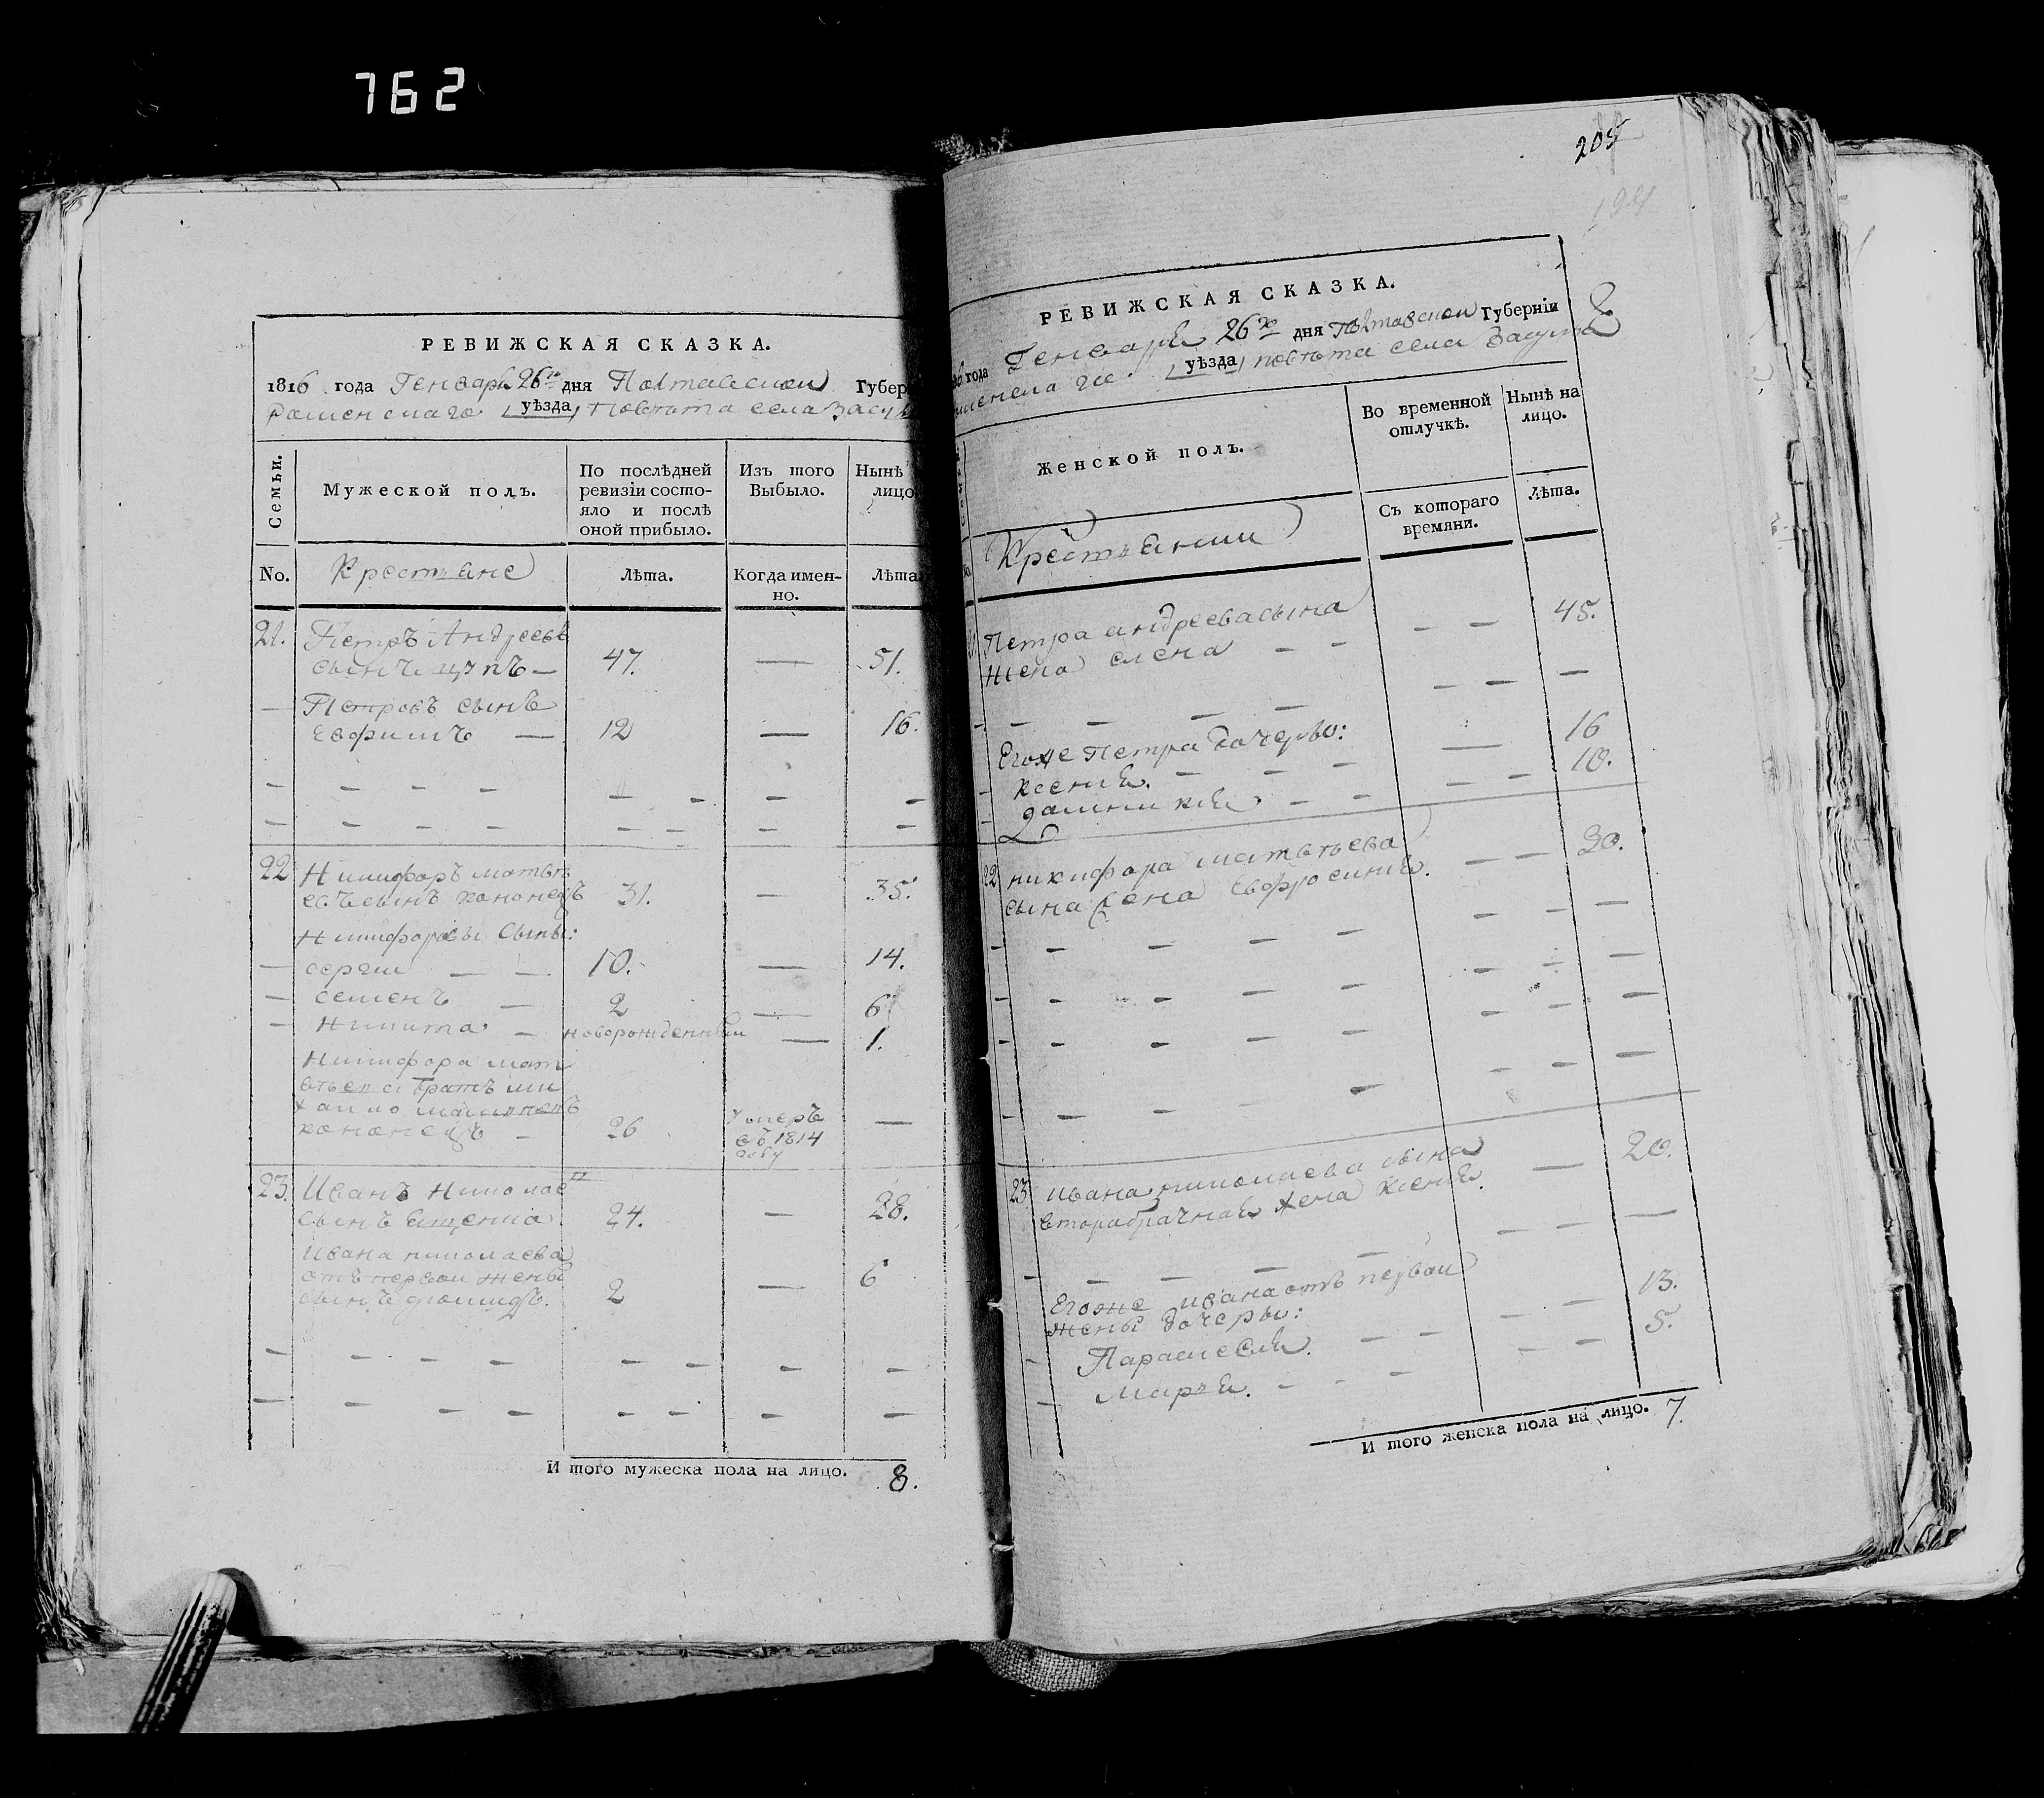 762
РЕВИЖСКАЯ СКАЗКА.
1816 года Генваря 26го дня Полтавской Губер
Роменскаго уѣзда, повѣта села Засу
Семьи.
Мужеской полъ.
По послѣдней
ревизіи состо-
яло и послѣ
оной прибыло.
Изъ того
Выбыло.
Нынѣ
лицо
No.
Крестьяне
Лѣта.
Когда имен-
но.
Лѣта
21. Петръ Андреевъ
сынъ 47. — 51.
— Петровъ сынъ
Евфимъ — 12 — 16.
22 Никифоръ матвѣ
евъ сынъ кононецъ 31. — 35.
Никифоровы сыны:
— сергій — — 10. — 14.
— семенъ — 2 — 6
— Никита — новорожденный — 1.
Никифора мат
вѣева братъ ми
хайло
кононецъ — 26 умеръ —
въ 1814
году
23. Иванъ Николаевъ
сынъ 24. — 28.
Ивана николаева
отъ первой жены
сынъ 2 — 6
И того мужеска пола на лицо. 8.
205
РЕВИЖСКАЯ СКАЗКА.
года Генваря 26го дня Полтавской Губерніи
менскаго уѣзда, повѣта села Засулья
Женской полъ.
Во временной
отлучкѣ.
Нынѣ на
лицо.
Съ котораго
времяни.
Лѣта.
Крестьянки
Петра андреева сына
жена елена — — — — 45.
Егоже Петра дочерьи:
ксенія. — — — — 16
домникія. — — — — 10.
22 никифора матвѣева
сына жена Евфросинія. — — 30.
23 ивана николаева сына
второбрачная жена ксенія. — 20.
Егоже ивана отъ первой
жены дочерьи:
Параскевія. 13.
Марія. — — — 5.
И того женска пола на лицо. 7.